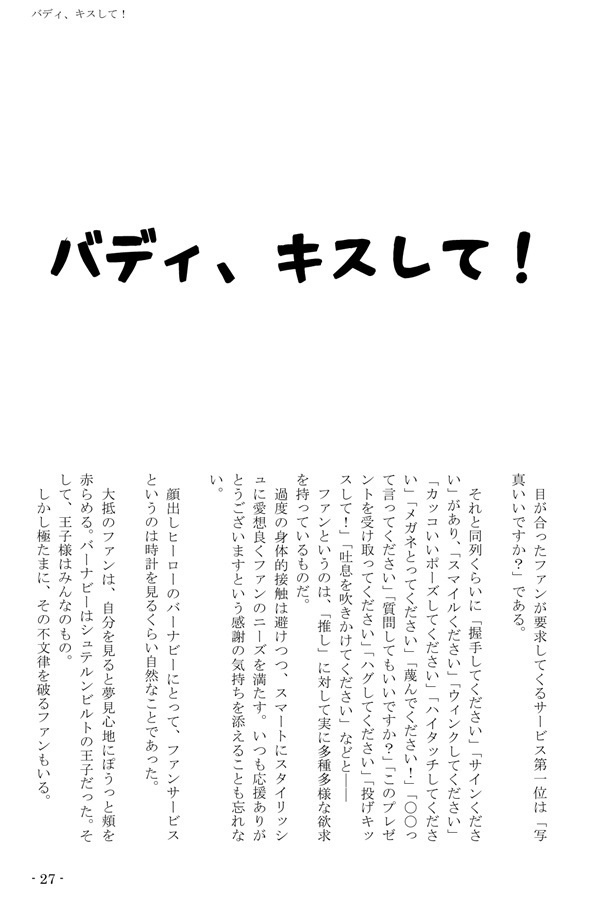 バディ、キスして！
バディ、キスして！
　目が合ったファンが要求してくるサービス第一位は「写
真いいですか？」である。
　それと同列くらいに「握手してください」「サインくださ
い」があり、「スマイルください」「ウィンクしてください」
「カッコいいポーズしてください」「ハイタッチしてくださ
い」「メガネとってください」「蔑んでください！」「○○っ
て言ってください」「質問してもいいですか？」「このプレゼ
ントを受け取ってください」「ハグしてください」「投げキッ
スして！」「吐息を吹きかけてください」などと――
　ファンというのは、「推し」に対して実に多種多様な欲求
を持っているものだ。
　過度の身体的接触は避けつつ、スマートにスタイリッシ
ュに愛想良くファンのニーズを満たす。いつも応援ありが
とうございますという感謝の気持ちを添えることも忘れな
い。
　顔出しヒーローのバーナビーにとって、ファンサービス
というのは時計を見るくらい自然なことであった。
　大抵のファンは、自分を見ると夢見心地にぽうっと頬を
赤らめる。バーナビーはシュテルンビルトの王子だった。そ
して、王子様はみんなのもの。
　しかし極たまに、その不文律を破るファンもいる。
- 27 -